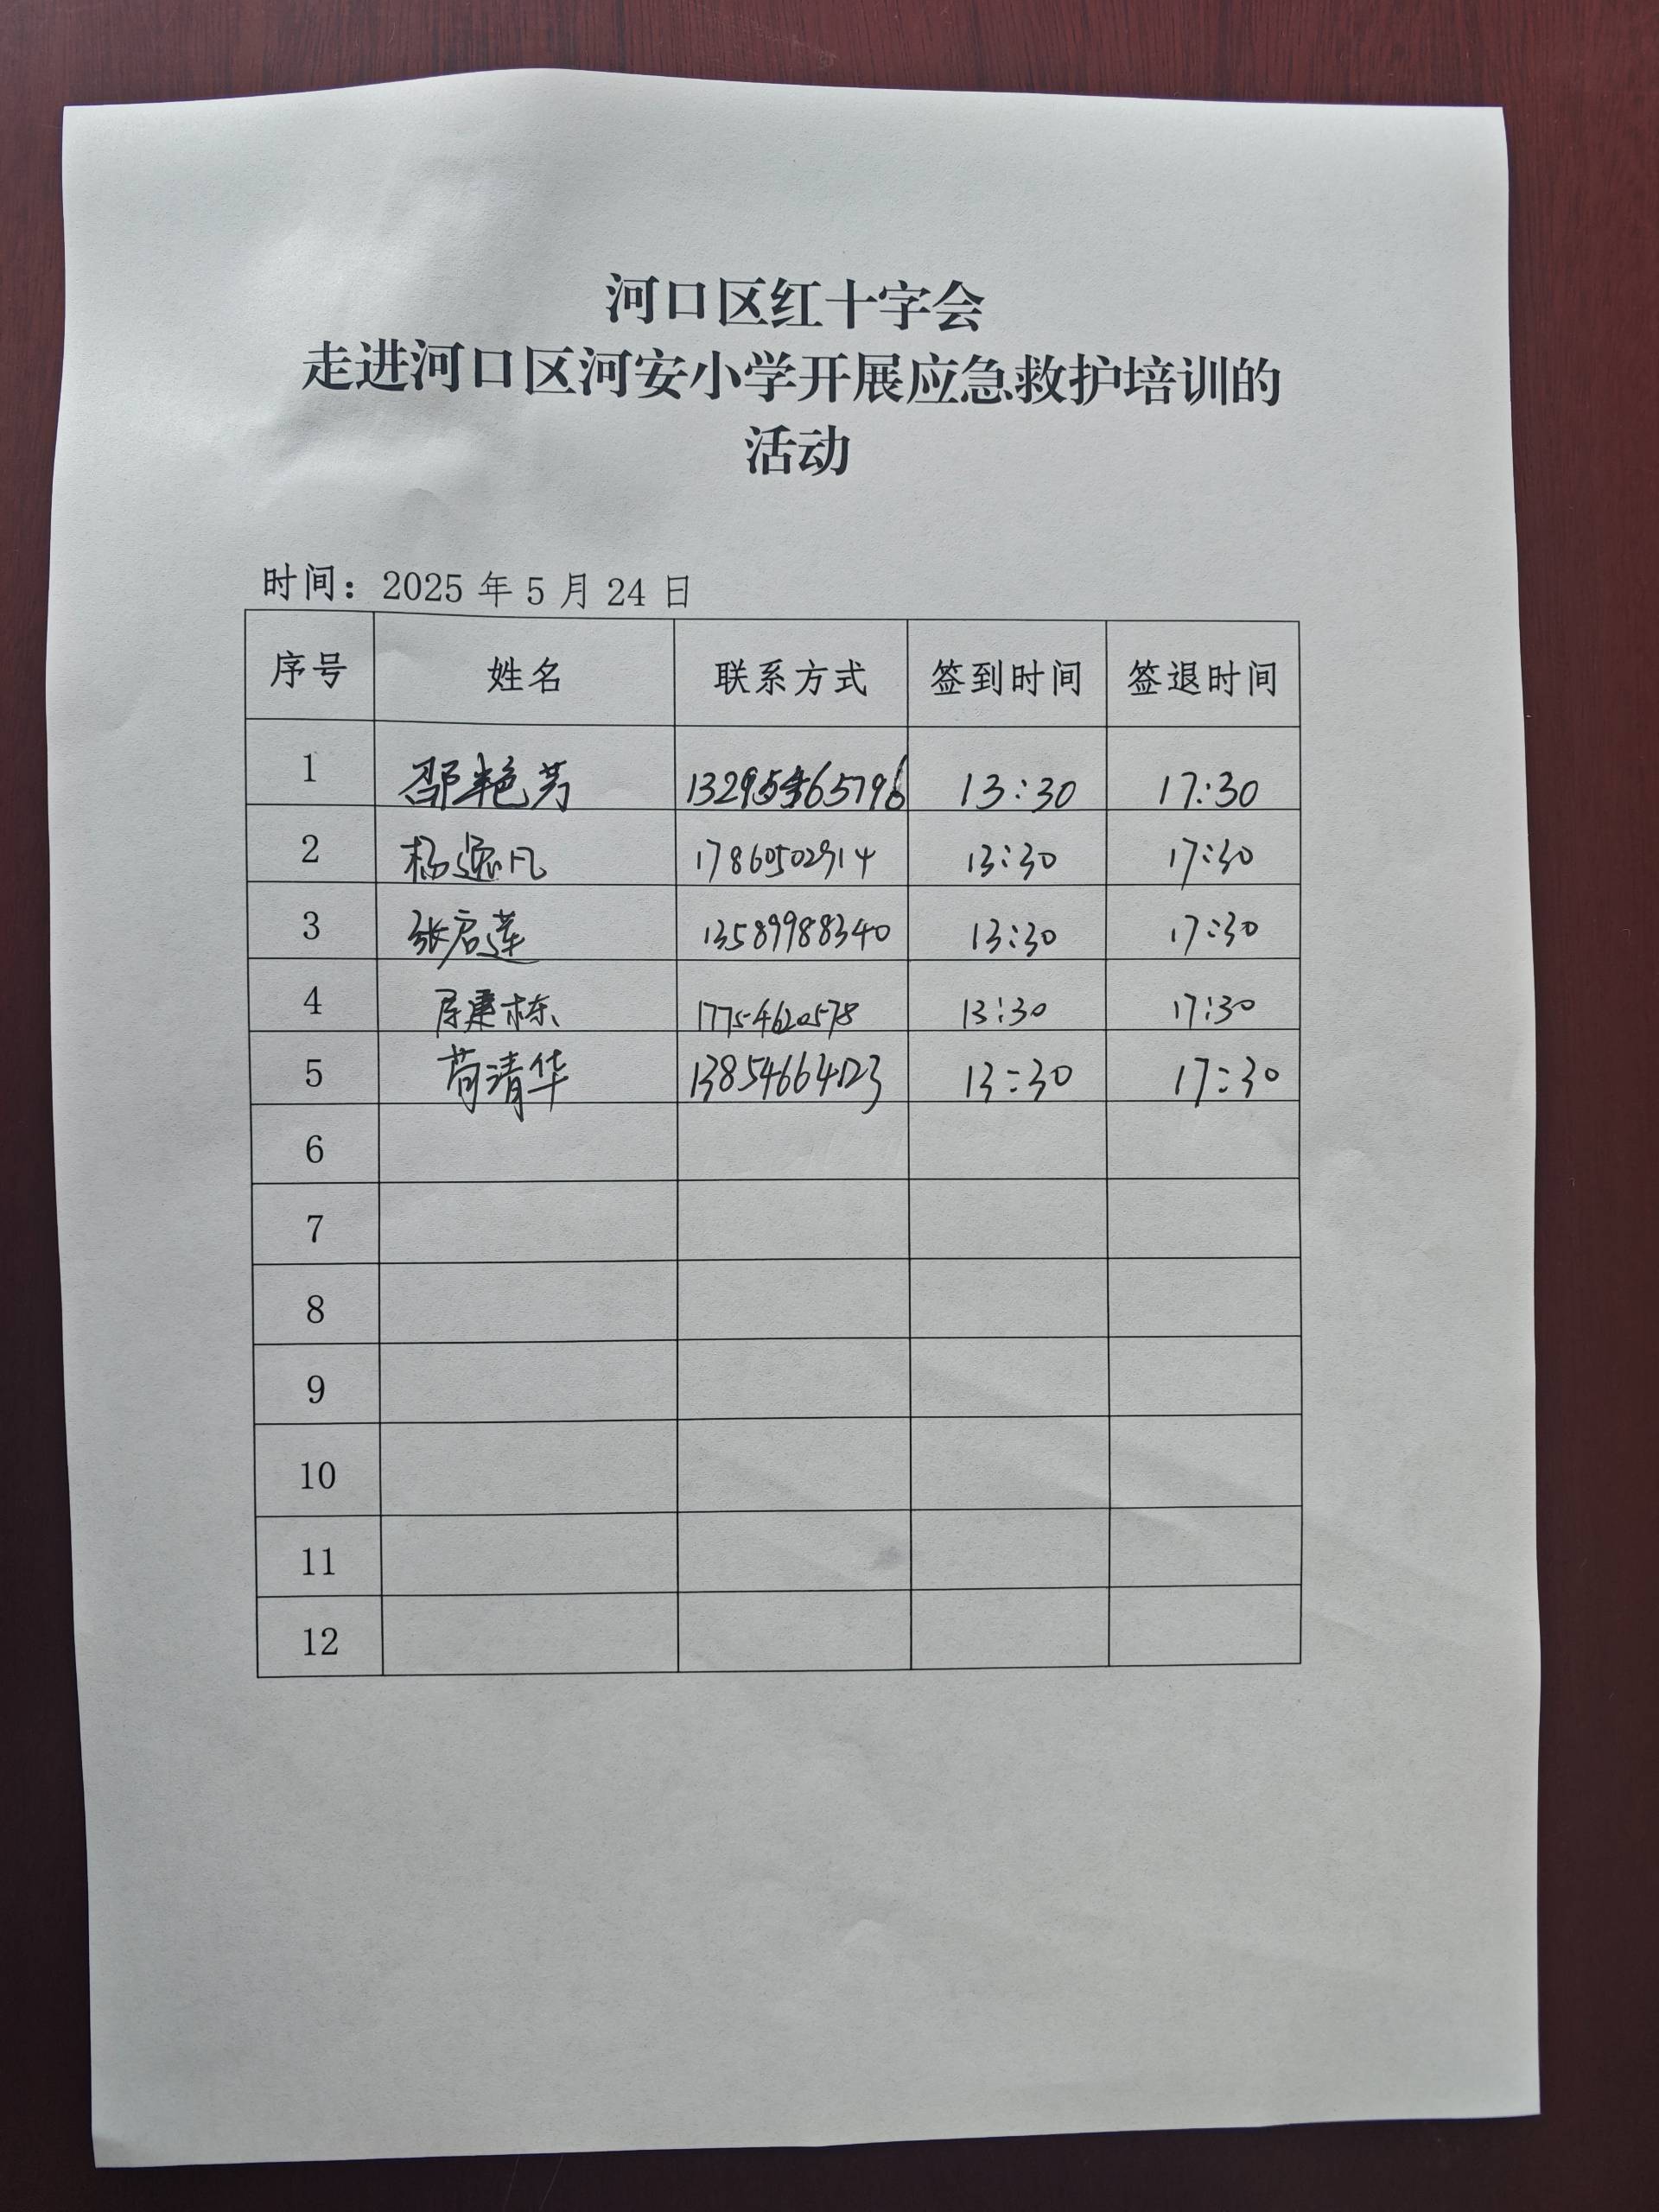 河口区红十字会
走进河口区河安小学开展应急救护培训的
活动
时间：2025 年 5 月 24 日
序号 姓名 联系方式 签到时间 签退时间
1 邵艳芳 13:30 17:30
2 杨逸凡 17860502914 13:30 17:30
3 张启莲 13589988340 13:30 17:30
4 建栋 17754620578 13:30 17:30
5 苟清华 13854664123 13:30 17:30
6
7
8
9
10
11
12